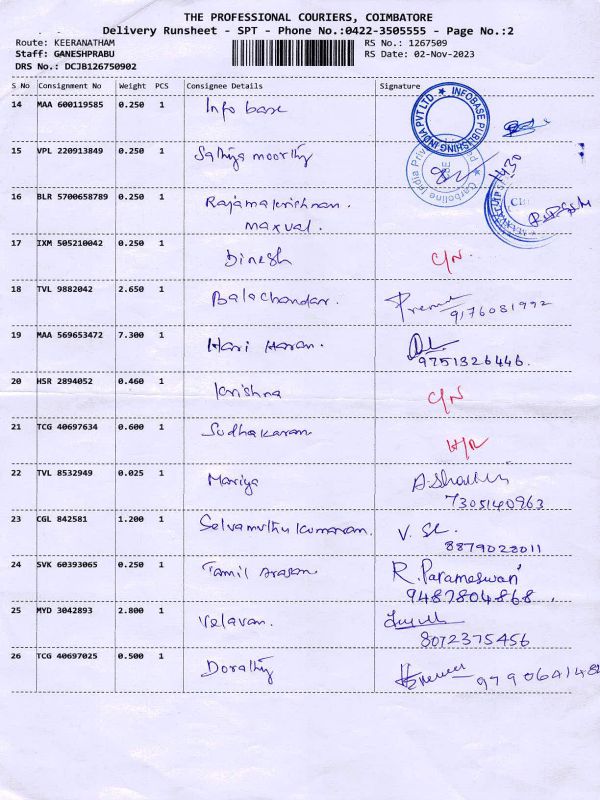 THE PROFESSIONAL COURIERS, COIMBATORE
Delivery Runsheet - SPT - Phone No.:0422-3505555 - Page No.:2
Route: KEERANATHAM RS No.: 1267509
Staff: GANESHPRABU RS Date: 02-Nov-2023
DRS No.: DCJB126750902
S No Consignment No Weight PCS Consignee Details Signature
14 MAA 600119585 0.250 1 Info base
INFOBASE PUBLISHING INDIA PVT LTD
15 VPL 220913849 0.250 1 Sathya moorthy
Carboline India
16 BLR 5700658789 0.250 1 Rajamakrishnan.
maxval.
17 IXM 505210042 0.250 1 Dinesh C/N.
18 TVL 9882042 2.650 1 Balachandar. Prema
9176081992
19 MAA 569653472 7.300 1 Hari Haran.
9751326446.
20 HSR 2894052 0.460 1 Krishna C/N
21 TCG 40697634 0.600 1 Sudhakaran H/R
22 TVL 8532949 0.025 1 Mariya
7305140963
23 CGL 842581 1.200 1 Selvamuthu kumaran. V. Se.
8879023011
24 SVK 60393065 0.250 1 Tamil Arasan R. Parameswari
9487804868.
25 MYD 3042893 2.800 1 Velavan.
8072375456
26 TCG 40697025 0.500 1 Dorathy